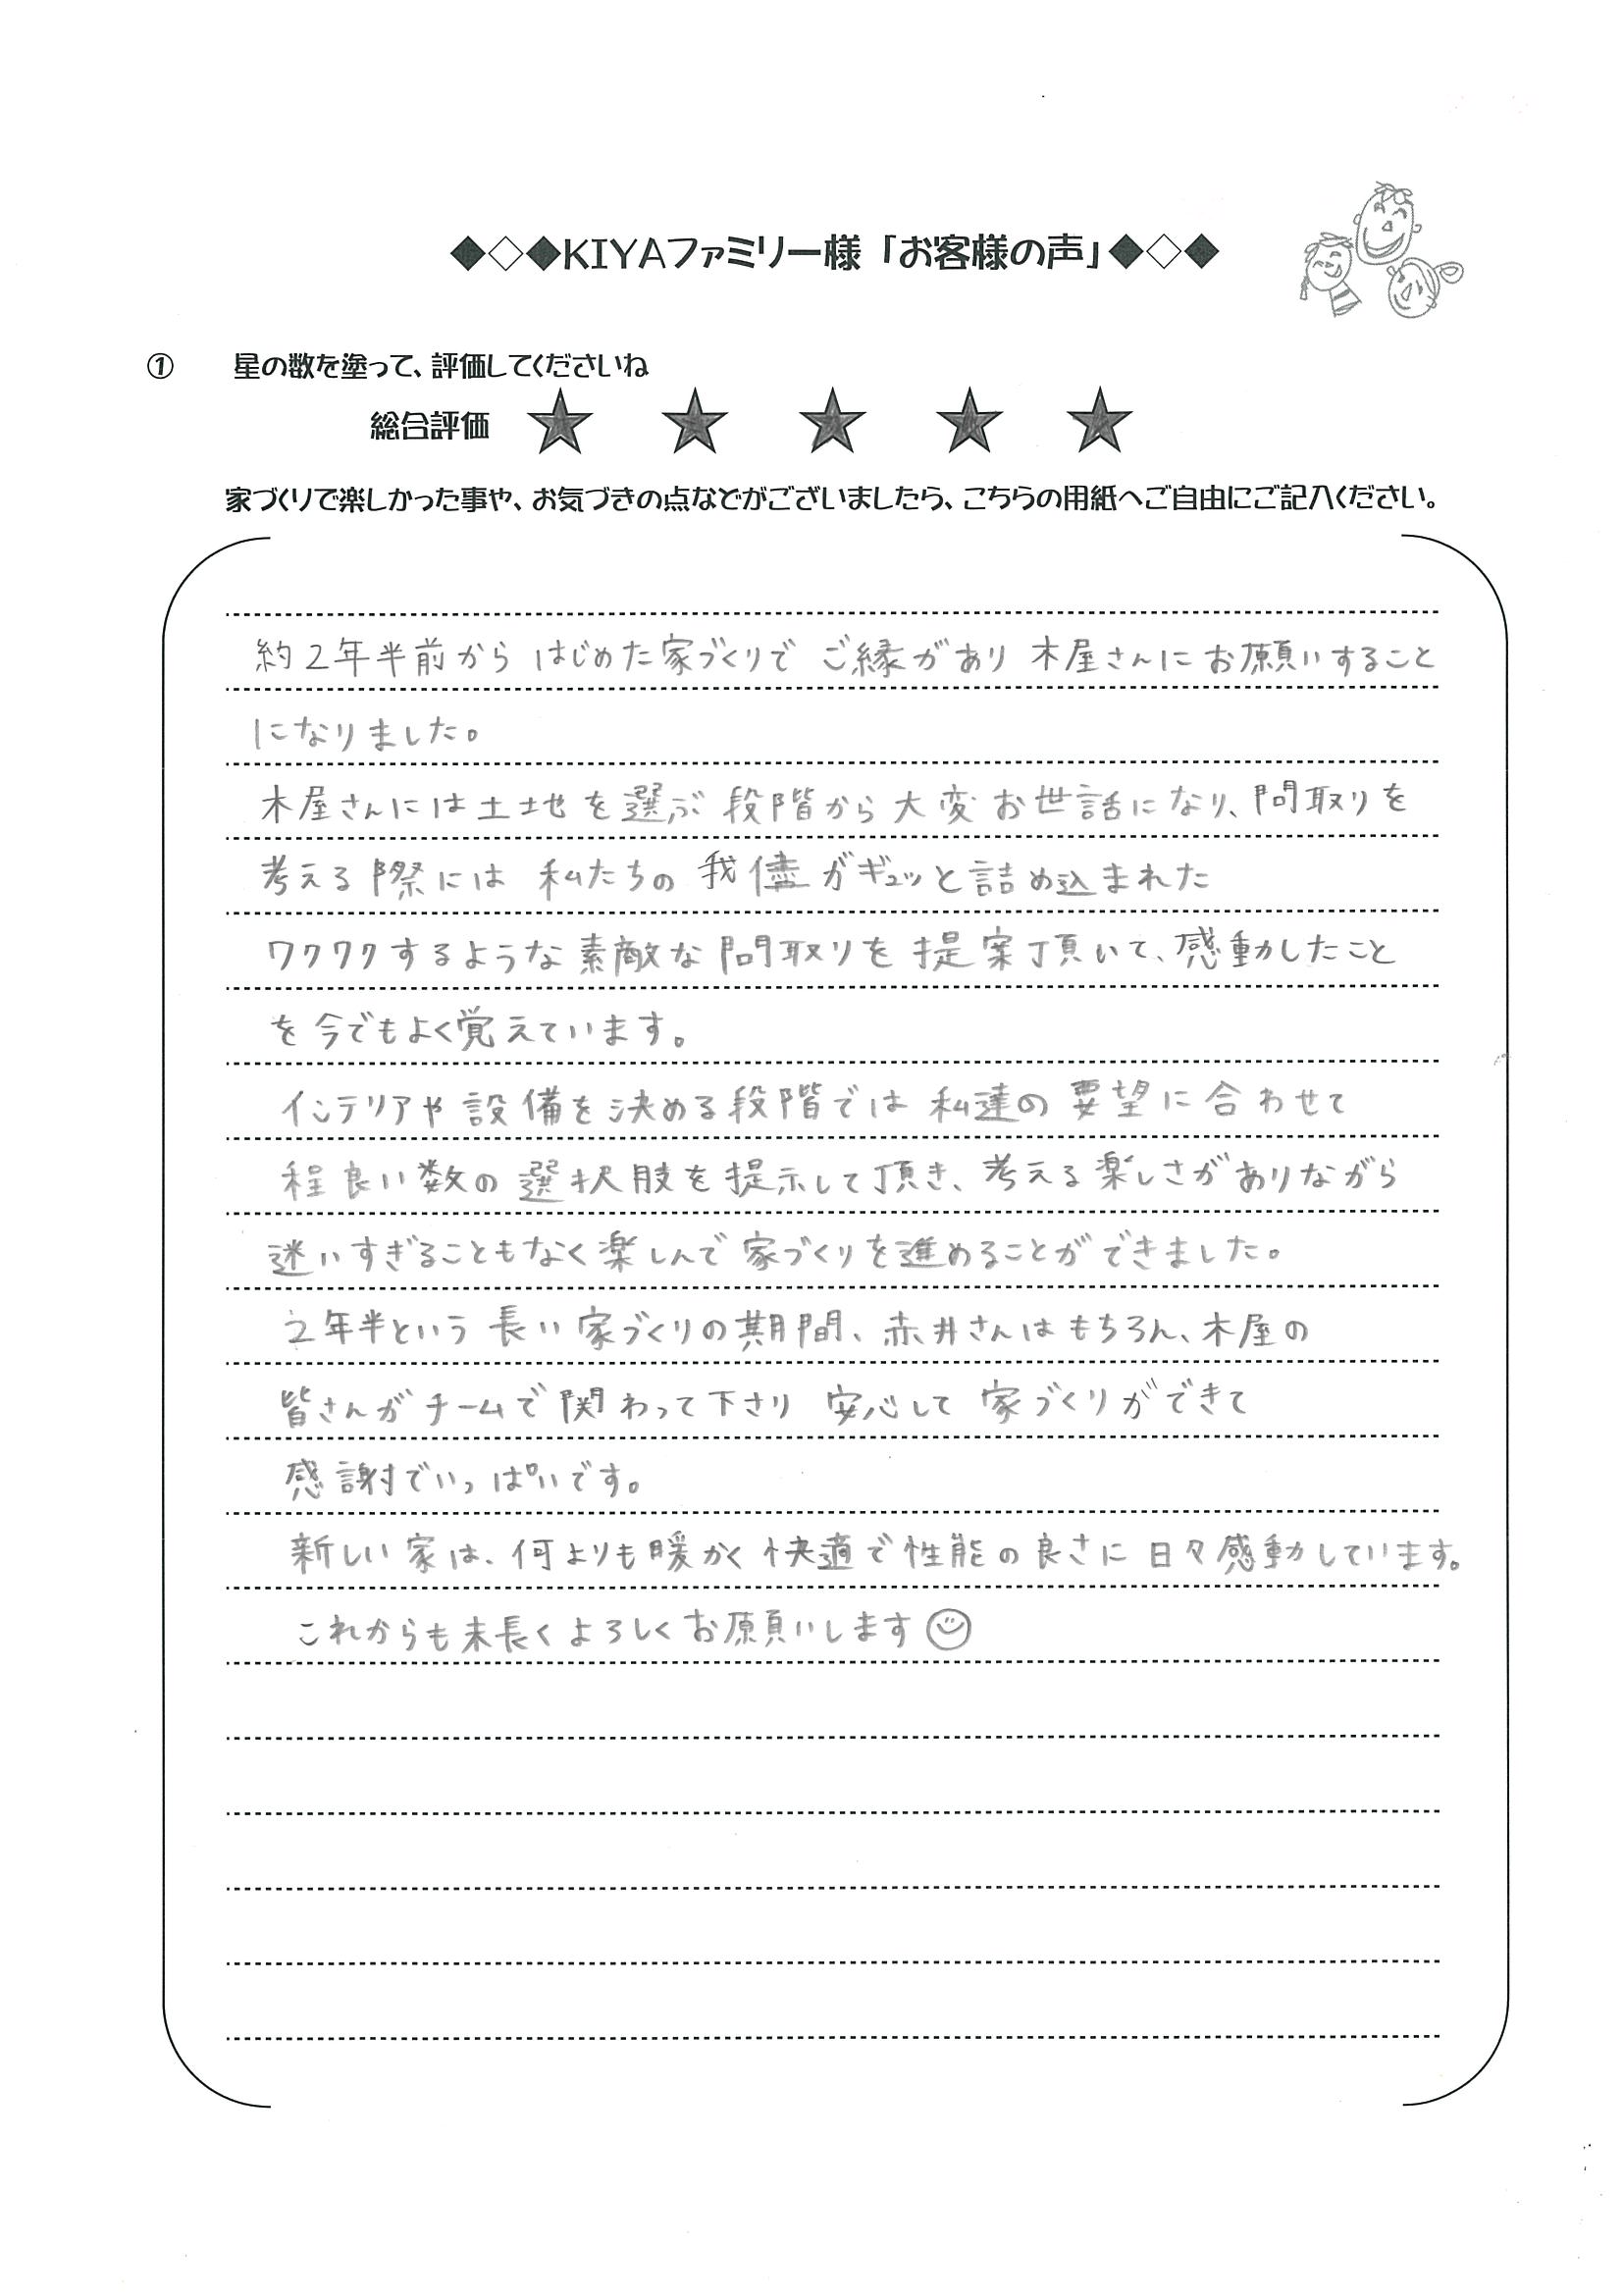 ◆◇◆KIYAファミリー様「お客様の声」◆◇◆
① 星の数を塗って、評価してくださいね
総合評価 ★ ★ ★ ★ ★
家づくりで楽しかった事や、お気づきの点などがございましたら、こちらの用紙へご自由にご記入ください。
約2年半前から はじめた家づくりで ご縁があり 木屋さんにお願いすること
になりました。
木屋さんには土地を選ぶ段階から大変お世話になり、間取りを
考える際には 私たちの 我儘がギュッと詰め込まれた
ワクワクするような素敵な間取りを 提案頂いて、感動したこと
を今でもよく覚えています。
インテリアや設備を決める段階では 私達の 要望に合わせて
程良い数の選択肢を提示して頂き、考える楽しさがありながら
迷いすぎることもなく楽しんで家づくりを進めることができました。
2年半という長い家づくりの期間、赤井さんはもちろん、木屋の
皆さんがチームで関わって下さり 安心して 家づくりができて
感謝でいっぱいです。
新しい家は、何よりも暖かく快適で性能の良さに日々感動しています。
これからも末長くよろしくお願いします☺